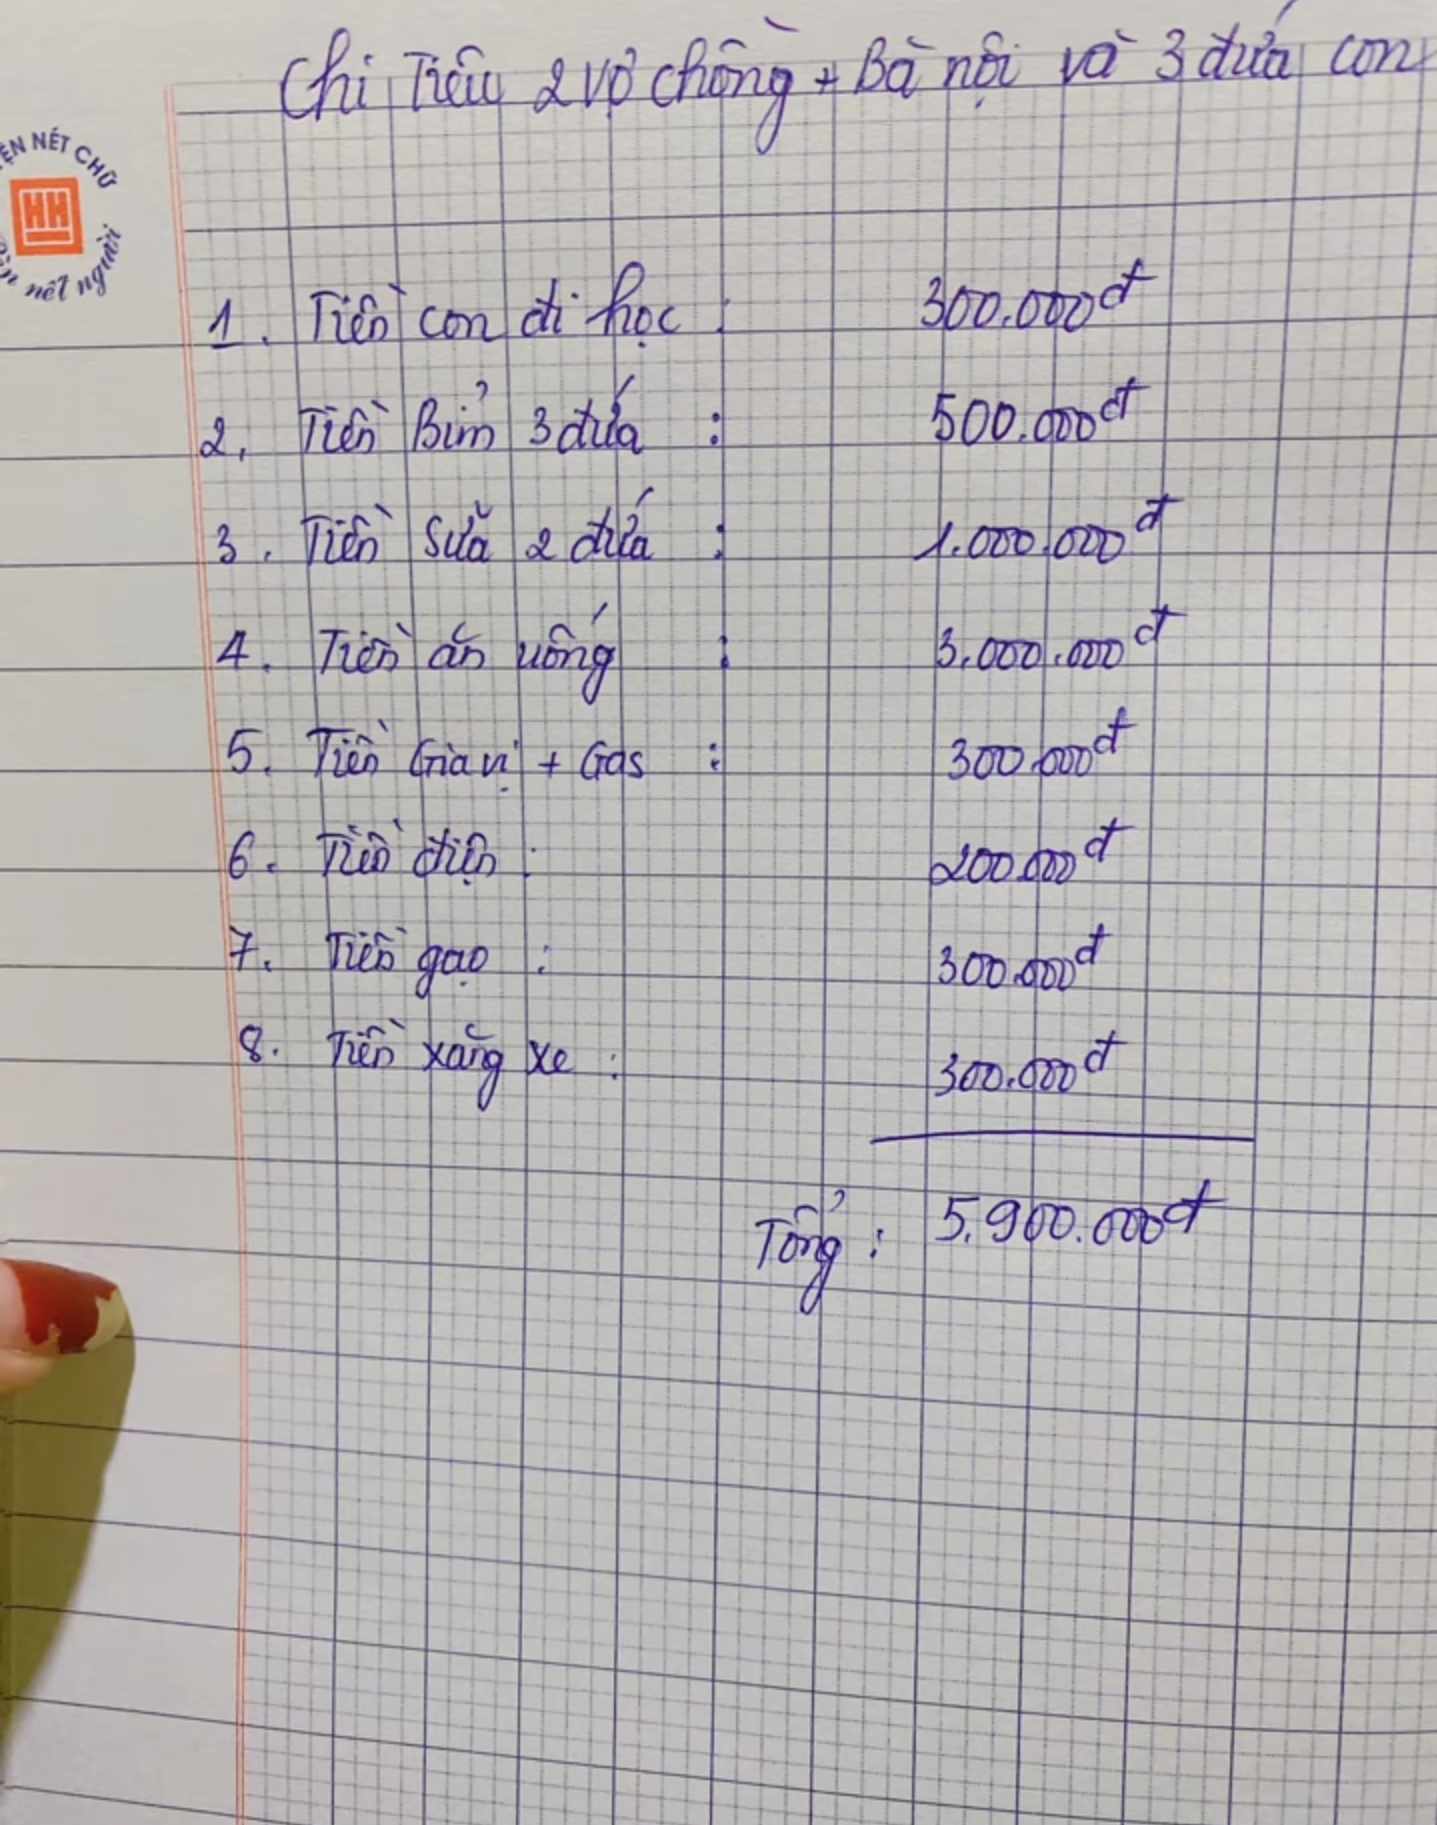 Chi Tiêu 2 vợ chồng + Bà nội và 3 đứa con
ỆN NÉT CHỮ
HH
nét người
1. Tiền con đi học : 300.000đ
2. Tiền Bỉm 3 đứa : 500.000đ
3. Tiền Sữa 2 đứa : 1.000.000đ
4. Tiền ăn uống : 3.000.000đ
5. Tiền Gia vị + Gas : 300.000đ
6. Tiền điện : 200.000đ
7. Tiền gạo : 300.000đ
8. Tiền xăng xe : 300.000đ
Tổng : 5.900.000đ